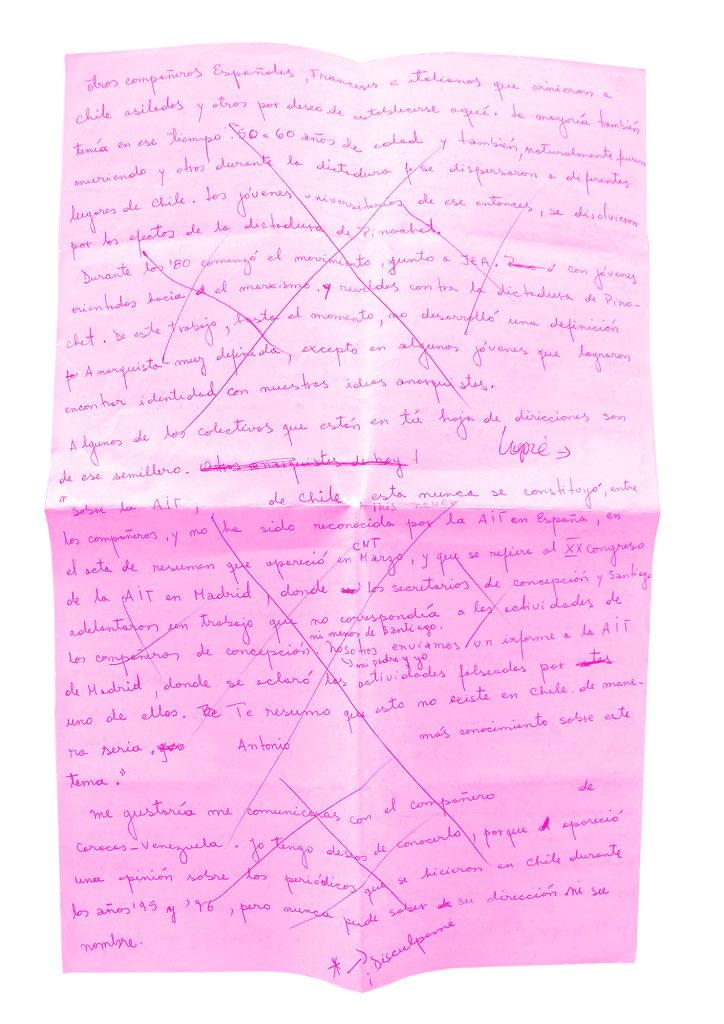 otros compañeros Españoles, Franceses e italianos que vinieron a
chile asilados y otros por deseo de establecerse aquí. La mayoría también
tenía en ese tiempo 50 a 60 años de edad y también, naturalmente fueron
muriendo y otros durante la dictadura se dispersaron a diferentes
lugares de Chile. Los jóvenes universitarios de ese entonces, se disolvieron
por los efectos de la dictadura de Pinochet.
Durante los '80 comenzó el movimiento, junto a JEA. ó con jóvenes
orientados hacia el marxismo. y reveldes contra la dictadura de Pino-
chet. De este trabajo, hasta el momento, no desarrolló una definición
Anarquista muy definida, excepto en algunos jóvenes que lograron
encontrar identidad con nuestras ideas anarquistas.
Algunos de los colectivos que están en tú hoja de direcciones son
de ese semillero. Otros anarquistas de hoy !
"Sobre la AIT, de Chile esta nunca se constituyó, entre
los compañeros, y no ha sido reconocida por la AIT en España, en
el acta de resumen que apareció en CNT Marzo, y que se refiere al XX congreso
de la AIT en Madrid, donde los secretarios de concepción y Santiago
adelantaron un trabajo que no correspondía a las actividades de
los compañeros de concepción. ni menos de Santiago. Nosotros enviamos un informe a la AIT
mi padre y yo
de Madrid, donde se aclaró las actividades falseadas por
uno de ellos. Te resumo que esto no existe en Chile. de mane-
ra seria. Antonio más conocimiento sobre este
tema."
Me gustaría me comunicaras con el compañero de
Caracas-Venezuela. Yo tengo deseos de conocerlo, porque apareció
una opinión sobre los periódicos que se hicieron en Chile durante
los años '95 y '96, pero nunca pude saber de su dirección ni su
nombre.
* → ¡Disculpame